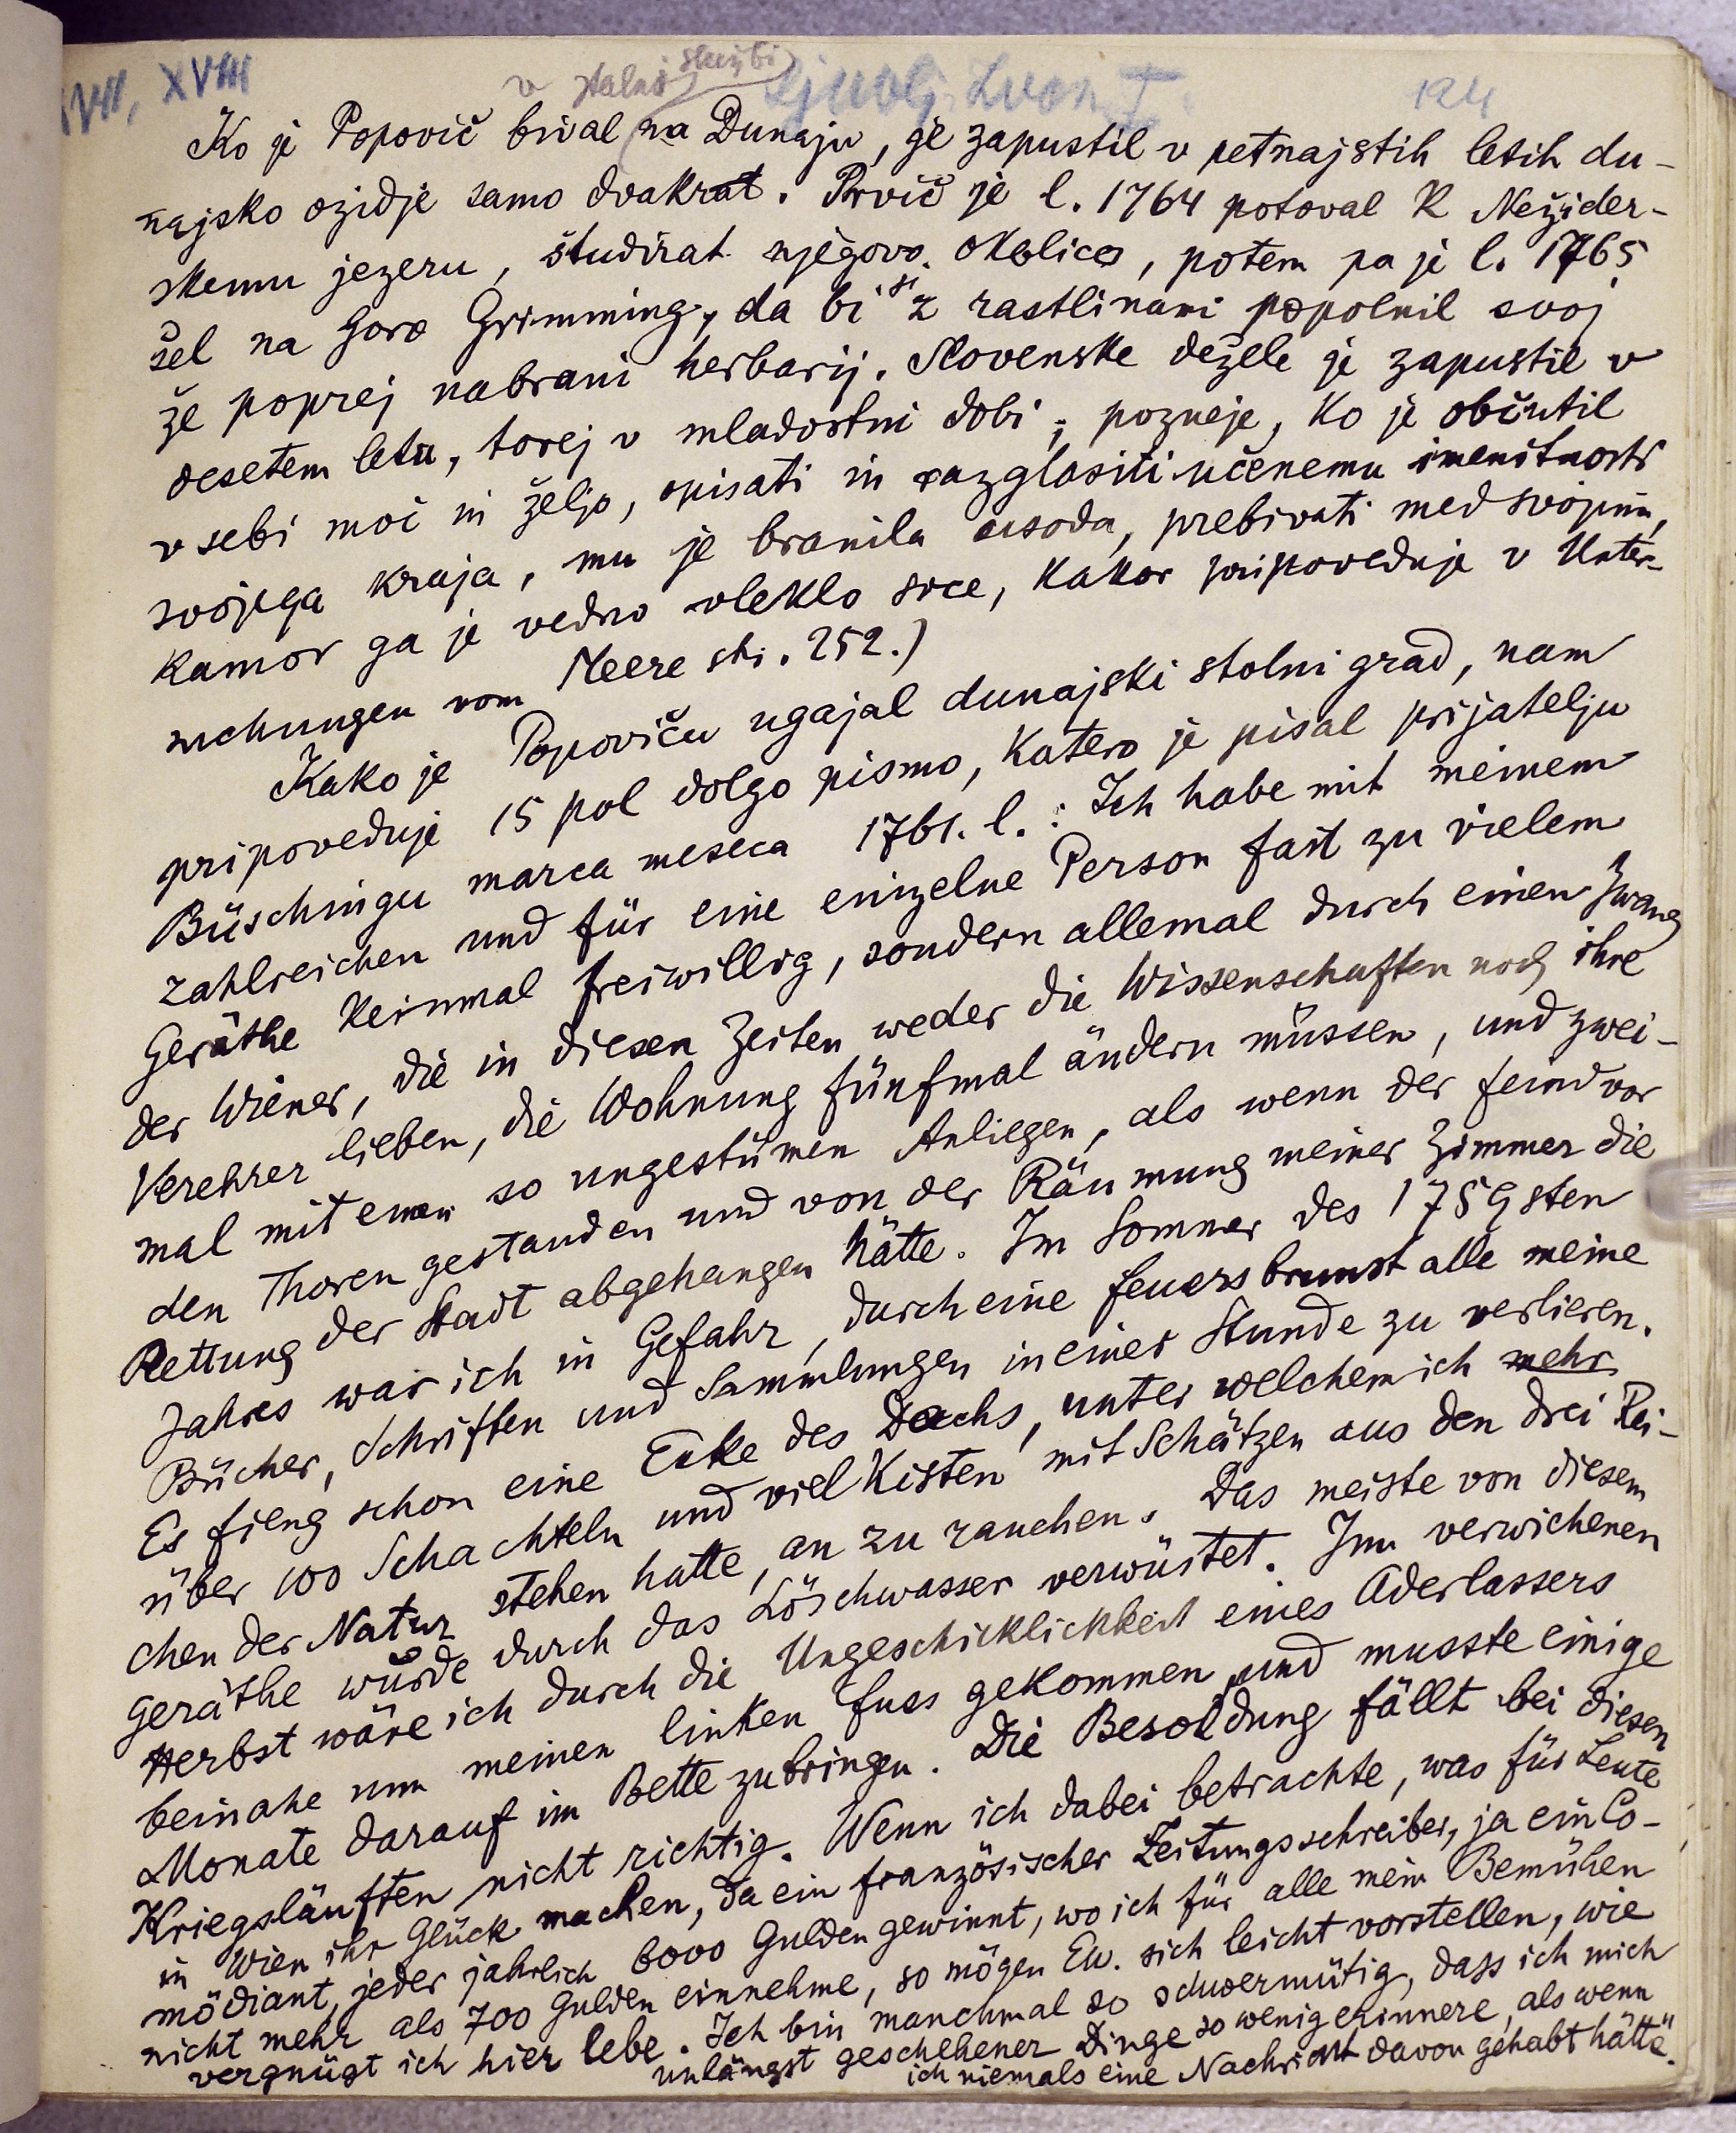 XVII, XVIII
v stalni službi
Ljublj. Zvon I.
124
Ko je Popovič bival na Dunaju, je zapustil v petnajstih letih du-
najsko ozidje samo dvakrat. Prvič je l. 1764 potoval k Nežider-
skemu jezeru, študirat njegovo okolico, potem pa je l. 1765
šel na goro Grimming, da bi si z rastlinami popolnil svoj
že poprej nabrani herbarij. Slovenske dežele je zapustil v
desetem letu, torej v mladostni dobi; pozneje, ko je občutil
v sebi moč in željo, opisati in razglasiti učenemu imenitnosti
svojega kraja, mu je branila usoda, prebivati med svojimi,
kamor ga je vedno vleklo srce, kakor pripoveduje v Unter-
suchungen vom Meere str. 252.)
Kako je Popoviču ugajal dunajski stolni grad, nam
pripoveduje 15 pol dolgo pismo, katero je pisal prijatelju
Büschingu marca meseca 1761. l.: Ich habe mit meinem
zahlreichen und für eine einzelne Person fast zu vielem
Geräthe keinmal freiwillig, sondern allemal durch einen Zwang
der Wiener, die in diesen Zeiten weder die Wissenschaften noch ihre
Verehrer lieben, die Wohnung fünfmal ändern müssen, und zwei-
mal mit einem so ungestümen Anliegen, als wenn der Feind vor
den Thoren gestanden und von der Räumung meiner Zimmer die
Rettung der Stadt abgehangen hätte. Im Sommer des 1759sten
Jahres war ich in Gefahr, durch eine Feuersbrunst alle meine
Bücher, Schriften und Sammlungen in einer Stunde zu verlieren.
Es fieng schon eine Ecke des Dachs, unter welchem ich mehr
über 100 Schachteln und viel Kisten mit Schätzen aus den drei Rei-
chen der Natur stehen hatte, an zu rauchen. Das meiste von diesem
Geräthe wurde durch das Löschwasser verwüstet. Im verwichenen
Herbst wäre ich durch die Ungeschicklichkeit eines Aderlassers
beinahe um meinen linken Fuss gekommen und musste einige
Monate darauf im Bette zubringen. Die Besoldung fällt bei diesen
Kriegsläuften nicht richtig. Wenn ich dabei betrachte, was für Leute
in Wien ihr Glück machen, da ein französischer Zeitungsschreiber, ja ein Co-
mödiant, jeder jahrlich 6000 Gulden gewinnt, wo ich für alle mein Bemühen
nicht mehr als 700 Gulden einnehme, so mögen Ew. sich leicht vorstellen, wie
vergnügt ich hier lebe. Ich bin manchmal so schwermütig, dass ich mich
unlängst geschehener Dinge so wenig erinnere, als wenn
ich niemals eine Nachricht davon gehabt hätte."